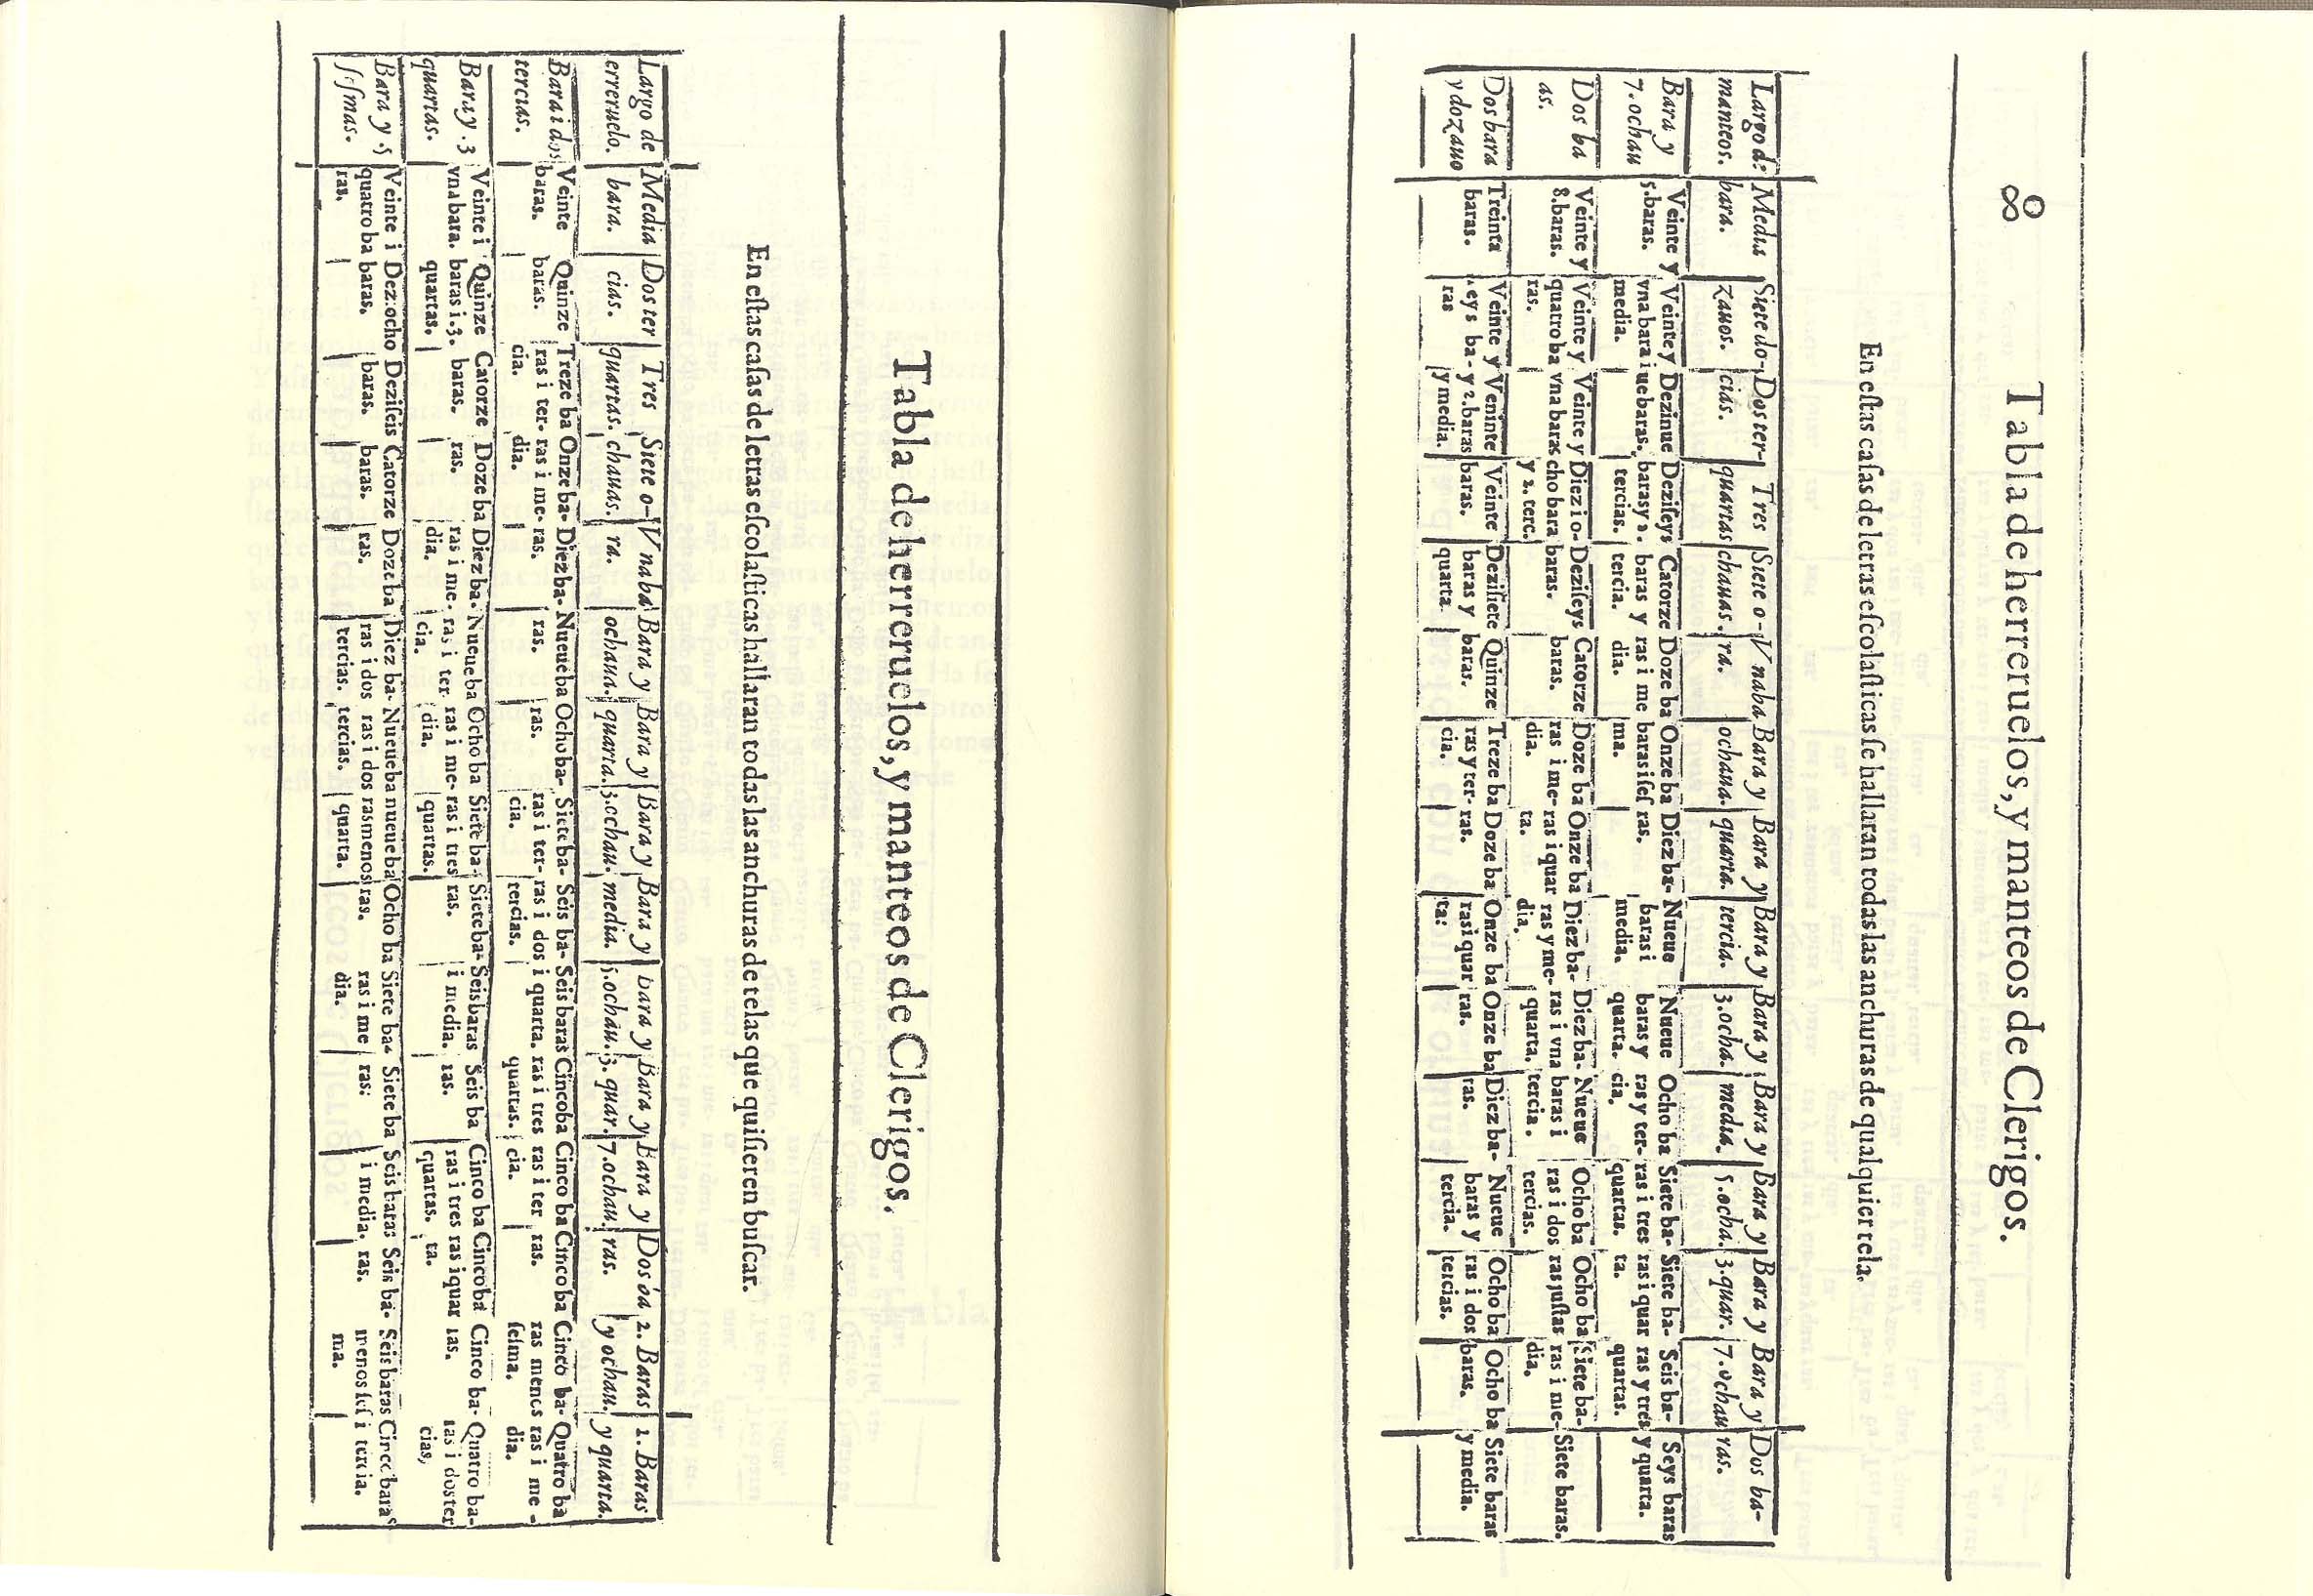 8 Tabla de herreruelos, y manteos de Clerigos.
En eſtas caſas de letras eſcolaſticas ſe hallaran todas las anchuras de qualquier tela.
Largo d: Media Siete do- Dos ter- Tres Siete o- V naba Bara y Bara y Bara y Bara y Bara y Bara y Bara y Bara y Dos ba-
manteos. bara. zauos. cias. quartas chauas. ra. ochaua. quarta. tercia. 3.ocha. media. 5.ocha. 3.quar. 7.ochau ras.
Bara y Veinte y Veinte y Dezinue Deziſeys Catorze Doze ba Onze ba Diez ba- Nueue Nueue Ocho ba Siete ba- Siete ba- Seis ba- Seys baras
7.ochau 5.baras. vna bara i ue baras. barasy 2. baras y ras i me baras i ſeſ ras. baras i baras y ras y ter- ras i tres ras i quar ras y tres y quarta.
media. tercias. tercia. dia. ma. media. quarta. cia. quartas. ta. quartas.
Dos ba Veinte y Veinte y Veinte y Diez i o- Deziſeys Catorze Doze ba Onze ba Diez ba- Diez ba- Nueue Ocho ba Ocho ba Siete ba- Siete baras.
as. 8.baras. quatro ba vna baras cho bara baras. baras. ras i me- ras i quar ras y me- ras i vna baras i ras i dos ras juſtas ras i me-
ras. y 2. terc. dia. ta. dia. quarta. tercia. tercias. dia.
Dos bara Treinta Veinte y Veninte Veinte Deziſiete Quinze Treze ba Doze ba Onze ba Onze ba Diez ba- Nueue Ocho ba Ocho ba Siete baras
y dozauo baras. ſeys ba- y 2.baras baras. baras y baras. ras y ter- ras. ras i quar ras. ras. baras y ras i dos baras. y media.
ras y media. quarta cia. ta: tercia. tercias.
Tabla de herreruelos, y manteos de Clerigos.
En eſtas caſas de letras eſcolaſticas hallaran todas las anchuras de telas que quiſieren buſcar.
Largo de Media Dos ter Tres Siete o- V naba Bara y Bara y Bara y Bara y bara y Bara y Bara y Dos óa 2. Baras 2. Baras
erreruelo. bara. cias. quartas. chauas. ra. ochaua. quarta. 3.ochau. media. 5.ochau. 3. quar. 7.ochau. ras. y ochau. y quarta.
Bara i dos Veinte Quinze Treze ba Onze ba- Diez ba- Nueue ba Ocho ba- Siete ba- Seis ba- Seis baras Cinco ba Cinco ba Cinco ba Cinco ba- Quatro ba
tercias. baras. baras. ras i ter- ras i me- ras. ras. ras. ras i ter- ras i dos i quarta. ras i tres ras i ter ras. ras menos ras i me -
cia. dia. cia. tercias. quartas. cia. ſeſma. dia.
Bara y .3 Veinte i Quinze Catorze Doze ba Diez ba- Nueue ba Ocho ba Siete ba- Siete ba- Seis baras Seis ba Cinco ba Cinco ba Cinco ba- Quatro ba-
quartas. vna bara. baras i.3. baras. ras. ras i me- ras i ter ras i me- ras i tres ras. i media. ras. ras i tres ras i quar ras. ras i dos ter
quartas. dia. cia. dia. quartas. quartas. ta. cias,
Bara y .5 Veinte i Dez:ocho Deziſeis Catorze Doze ba Diez ba- Nueue ba nueue ba Ocho ba Siete ba- Siete ba Seis baras Seis ba- Seis baras Cinco baras
ſeſmas. quatro ba baras. baras. baras. ras. ras i dos ras i dos ras menos ras. ras i me ras: i media. ras. menos ſeſ i tercia.
ras. tercias. tercias. quarta. dia. ma.